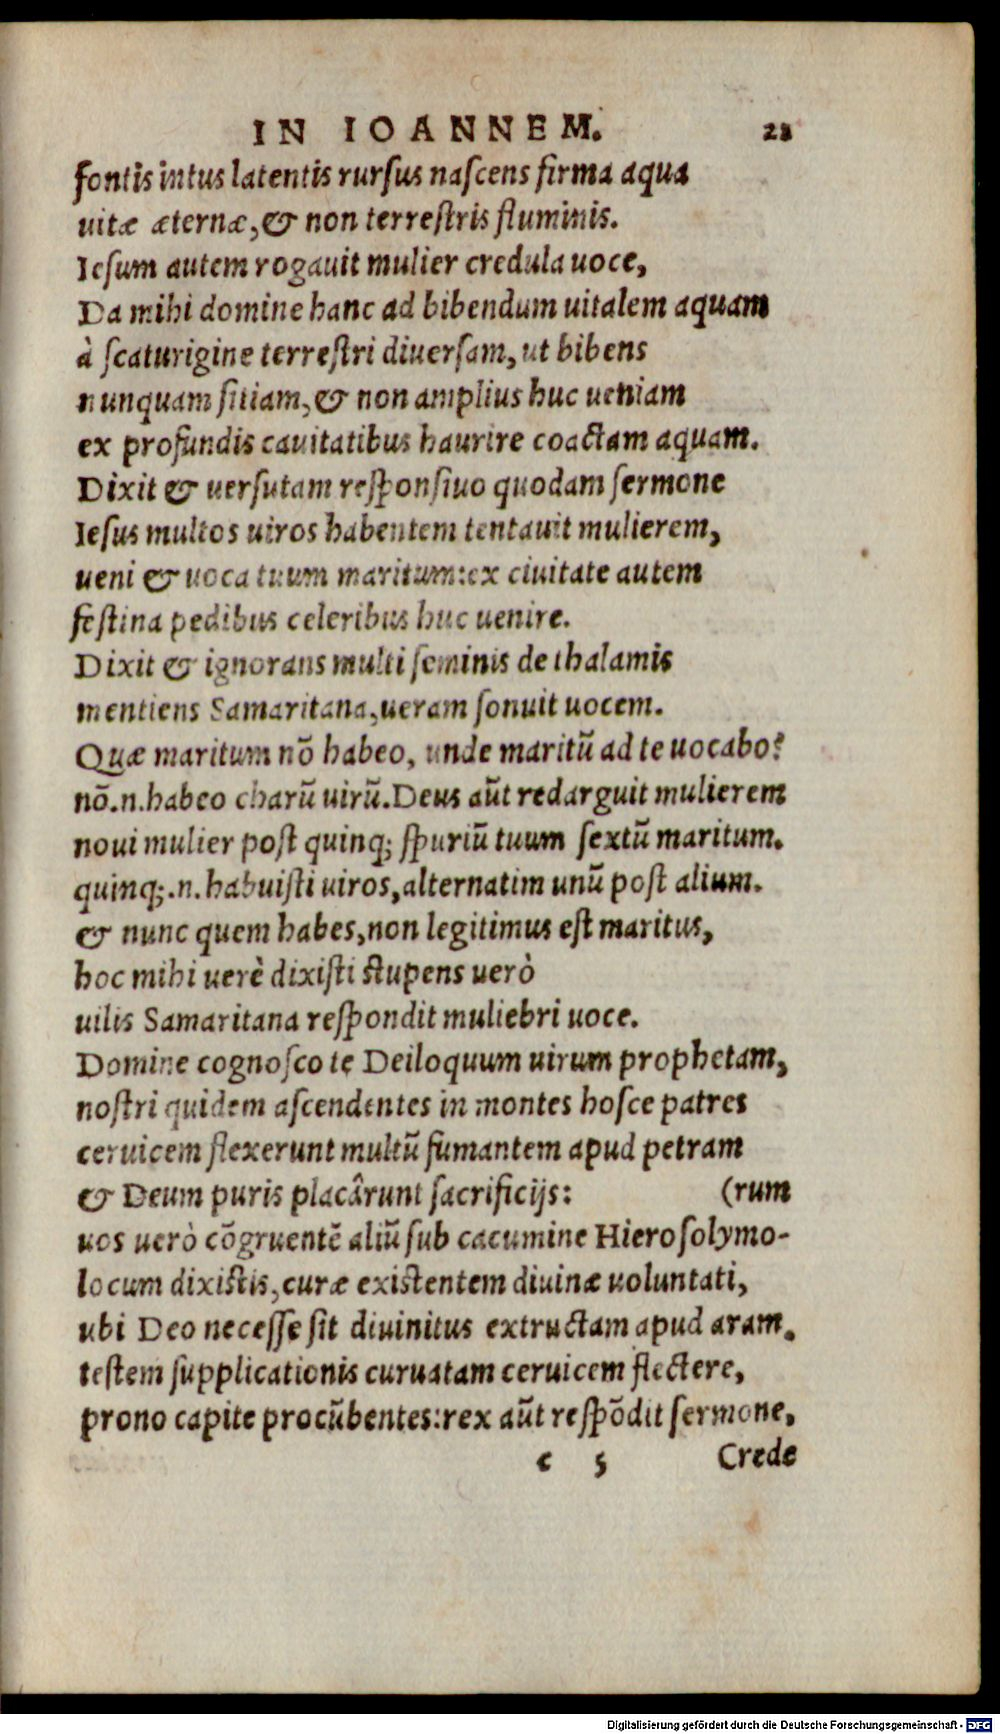 IN IOANNEM. 21
fontis intus latentis rursus nascens firma aqua
uitæ æternæ, & non terrestris fluminis.
Iesum autem rogauit mulier credula uoce,
Da mihi domine hanc ad bibendum uitalem aquam
à scaturigine terrestri diuersam, ut bibens
nunquam sitiam, & non amplius huc ueniam
ex profundis cauitatibus haurire coactam aquam.
Dixit & uersutam responsiuo quodam sermone
Iesus multos uiros habentem tentauit mulierem,
ueni & uoca tuum maritum: ex ciuitate autem
festina pedibus celeribus huc uenire.
Dixit & ignorans multi seminis de thalamis
mentiens Samaritana, ueram sonuit uocem.
Quæ maritum nō habeo, unde maritū ad te uocabo?
nō.n. habeo charū uirū. Deus aūt redarguit mulierem
noui mulier post quinq; spuriū tuum sextū maritum.
quinq;.n. habuisti uiros, alternatim unū post alium.
& nunc quem habes, non legitimus est maritus,
hoc mihi uerè dixisti stupens uerò
uilis Samaritana respondit muliebri uoce.
Domine cognosco te Deiloquum uirum prophetam,
nostri quidem ascendentes in montes hosce patres
ceruicem flexerunt multū fumantem apud petram
& Deum puris placârunt sacrificijs: (rum
uos uerò cōgruentē aliū sub cacumine Hierosolymo-
locum dixistis, curæ existentem diuinæ uoluntati,
ubi Deo necesse sit diuinitus extructam apud aram.
testem supplicationis curuatam ceruicem flectere,
prono capite procūbentes: rex aūt respōdit sermone,
c 5 Crede
Digitalisierung gefördert durch die Deutsche Forschungsgemeinschaft - DFG